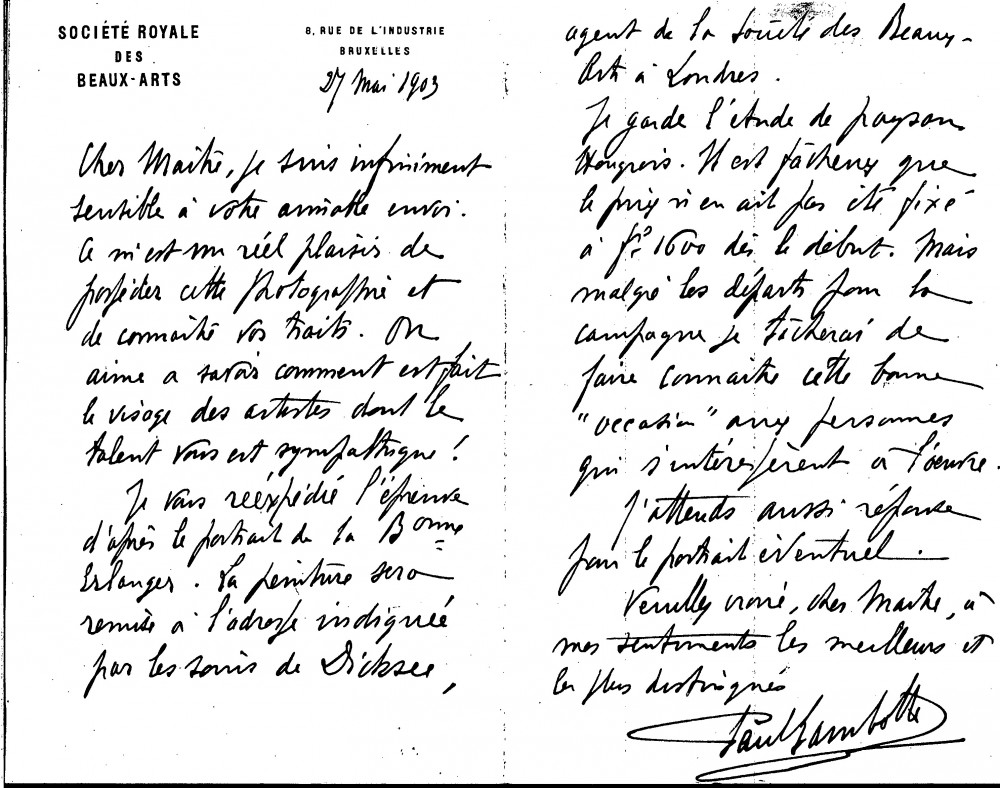 SOCIÉTÉ ROYALE
DES
BEAUX-ARTS
8, RUE DE L'INDUSTRIE
BRUXELLES
27 Mai 1903
Cher Maître, je suis infiniment
sensible à votre aimable envoi.
Ce m'est un réel plaisir de
posséder cette photographie et
de connaître vos traits. On
aime a savoir comment est fait
le visage des artistes dont le
talent vous est sympathique !
Je vous réexpédié l'épreuve
d'après le portrait de la Bonne
Erlanger. La peinture sera
remise à l'adresse indiquée
par les soins de Dicksee,
agent de la Société des Beaux-
Arts à Londres.
Je garde l'étude de paysan
Hongrois. Il est fâcheux que
le prix n'en ait pas été fixé
à frs 1600 dès le début. Mais
malgré les départs pour la
campagne je tâcherai de
faire connaître cette bonne
"occasion" aux personnes
qui s'intéressèrent à l'oeuvre.
J'attends aussi réponse
pour le portrait éventuel.
Veuillez croire, cher Maître, à
mes sentiments les meilleurs et
les plus distingués
Paul Lambotte